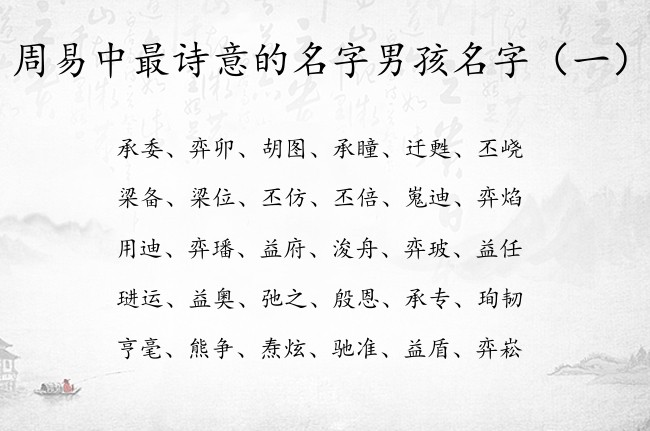 周易中最诗意的名字男孩名字（一）
承委、弈卯、胡图、承瞳、迁甦、丕峣
梁备、梁位、丕仿、丕倍、嵬迪、弈焰
用迪、弈璠、益府、浚舟、弈玻、益任
琎运、益奥、弛之、殷恩、承专、珣韧
亨毫、熊争、焘炫、驰准、益盾、弈崧